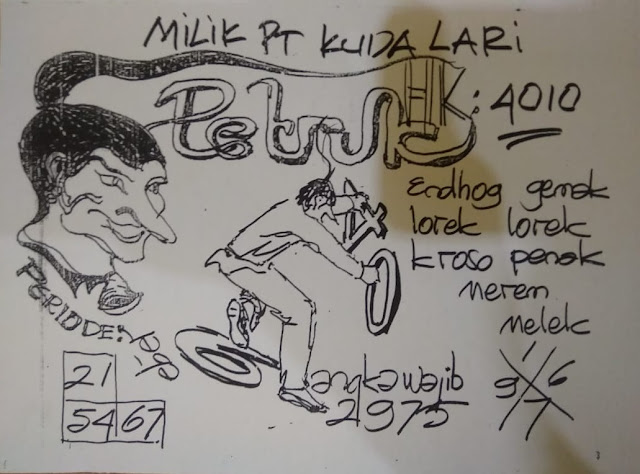 MILIK PT KUDA LARI
Petruk
HK: 4010
Endhog gemak
lorek lorek
kroso penak
merem
melek
PERIODE:
21
54 67
angka wajib
2975
1
9 6
7